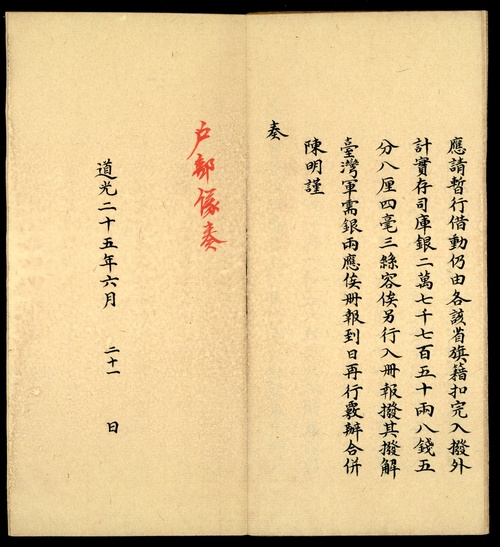 應請暫行借動仍由各該省旗籍扣完入撥外
計實存司庫銀二萬七千七百五十兩八錢五
分八厘四毫三絲容俟另行入冊報撥其撥解
臺灣軍需銀兩應俟冊報到日再行覈辦合併
陳明謹
奏
戶部議奏
道光二十五年六月 二十一 日